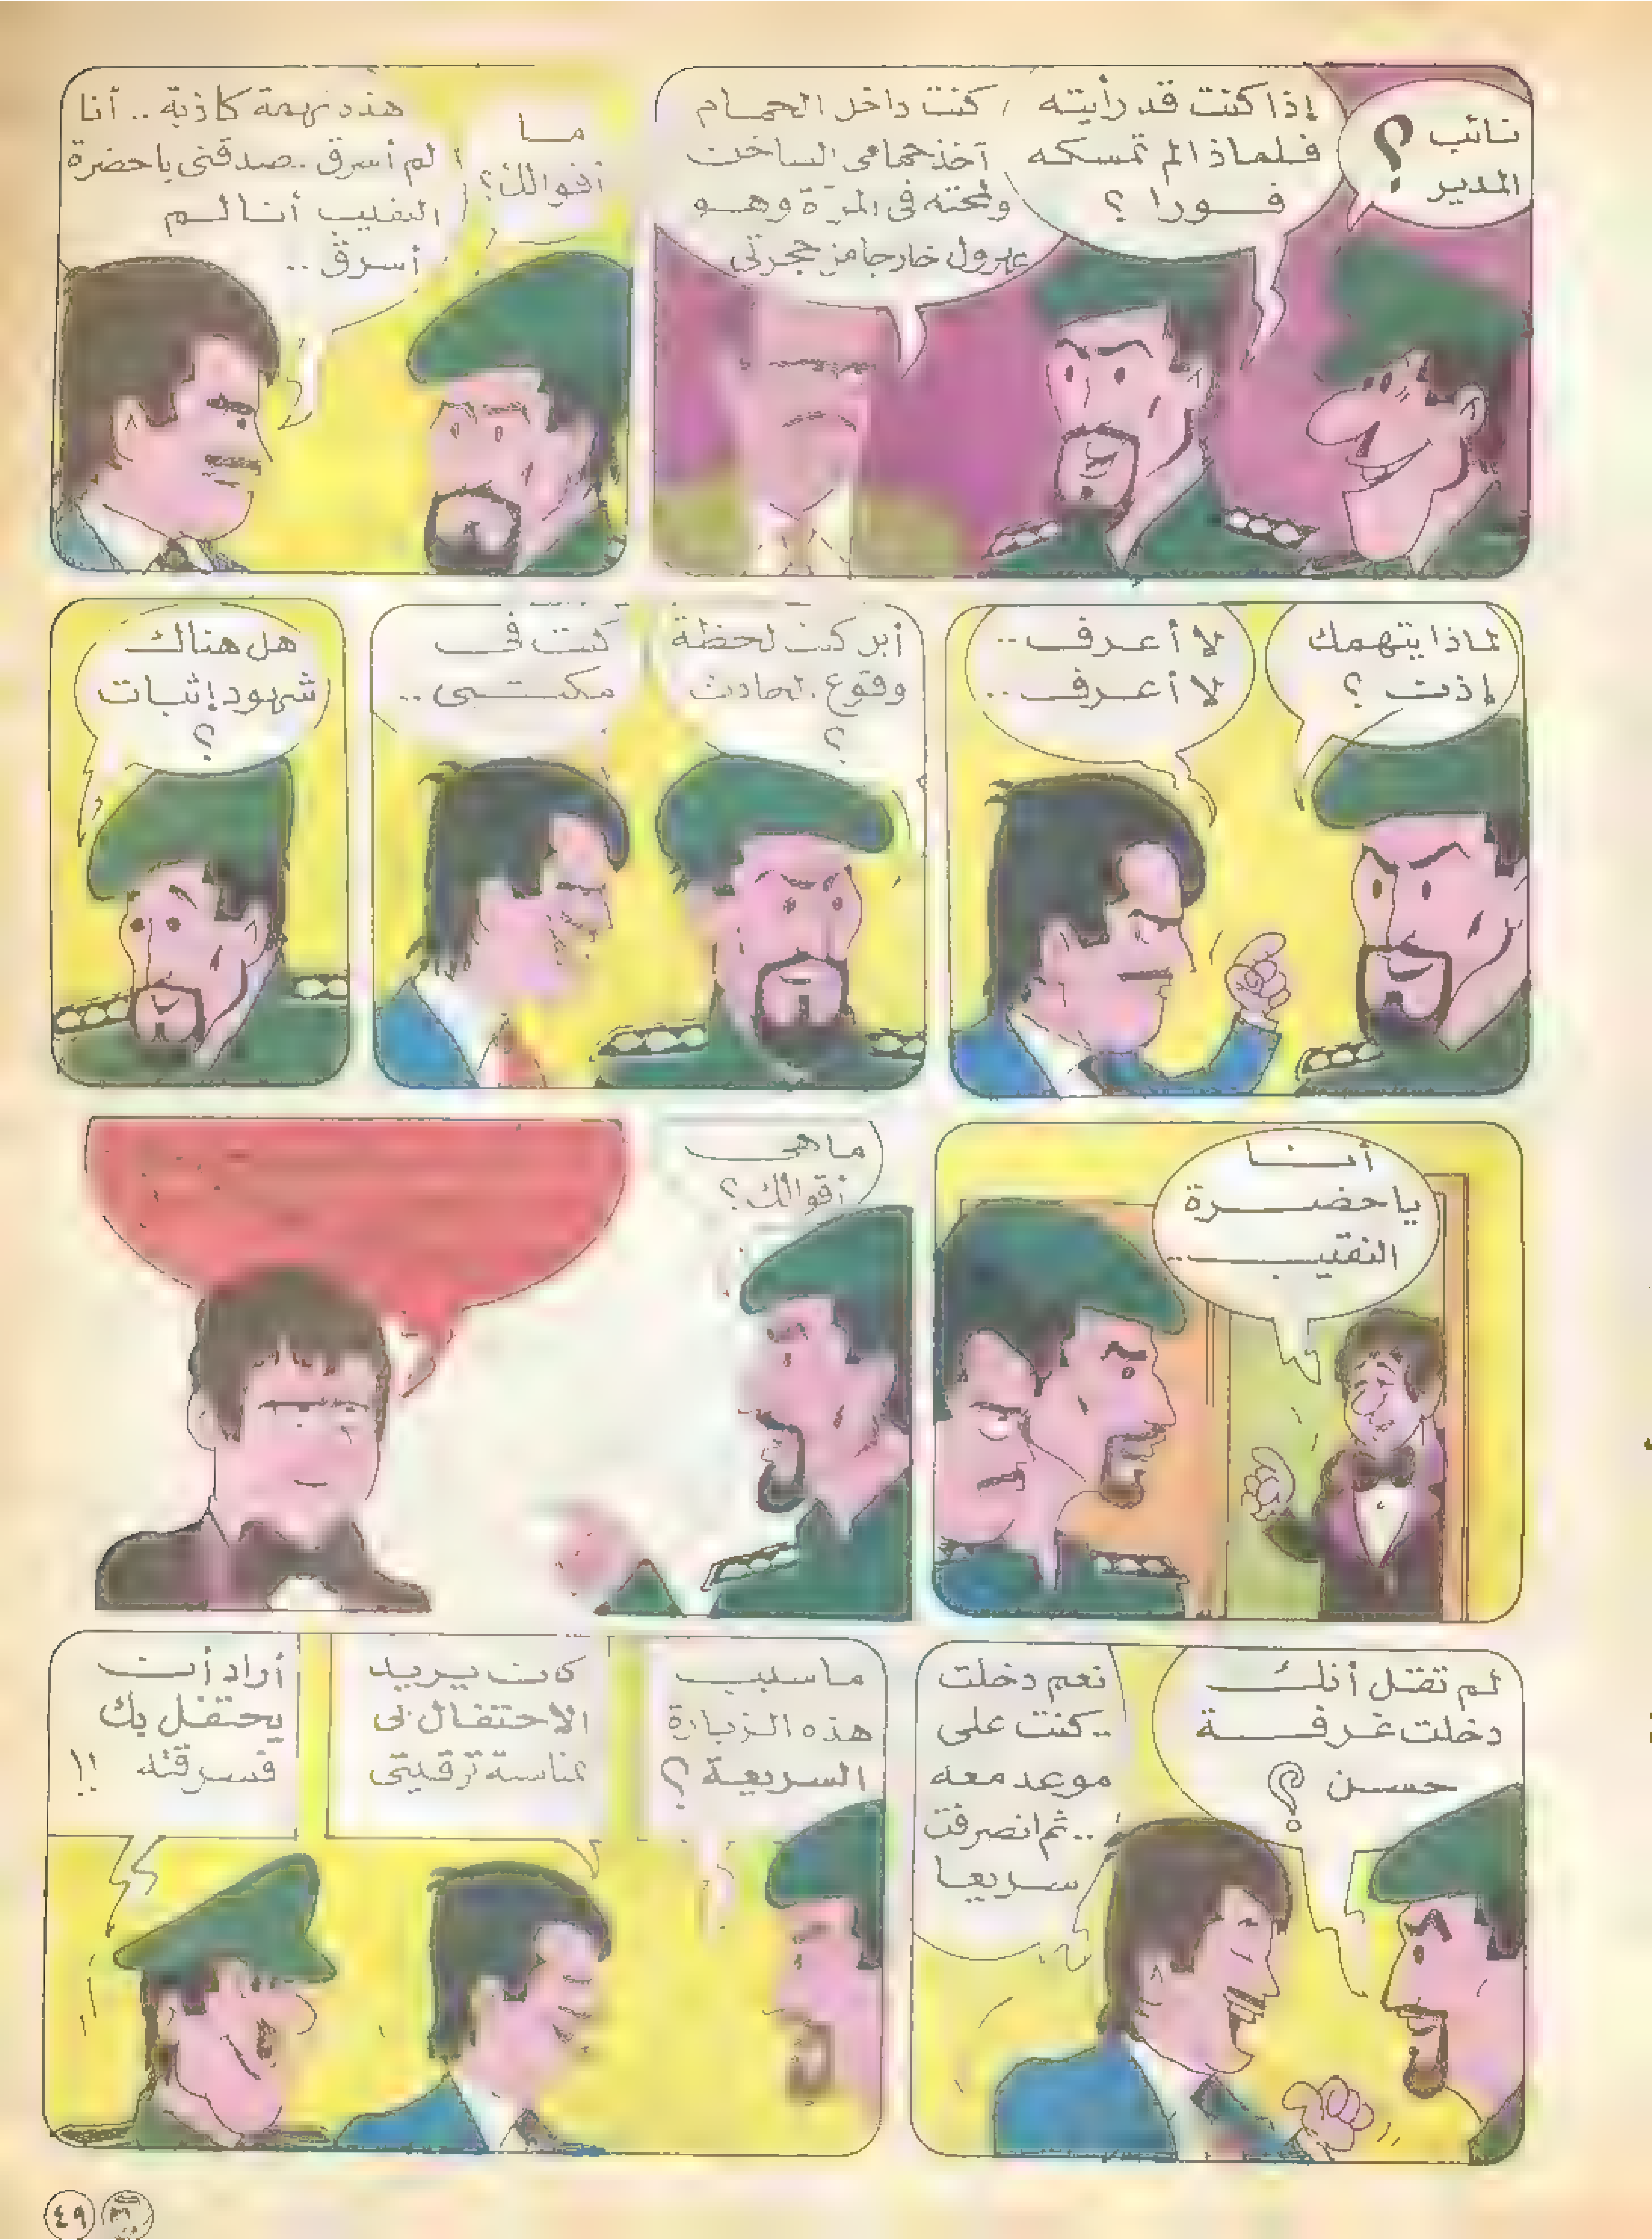 نائب
المدير ؟
إذا كنت قد رأيته
فلماذا لم تمسكه
فورا ؟
كنت داخل الحمام
آخذ حمامى الساخن
ولمحته فى المرآة وهو
يهرول خارجا من حجرتى
ما
أقوالك؟
هذه تهمة كاذبة .. أنا
لم أسرق .. صدقنى ياحضرة
النقيب أنا لم
أسرق ..
لماذا يتهمك
إذن ؟
لا أعرف ..
لا أعرف ..
أين كنت لحظة
وقوع الحادث
؟
كنت فى
مكتبى ..
هل هناك
شهود إثبات
؟
أنا
ياحضرة
النقيب ..
ماهى
أقوالك؟
لم تقل أنك
دخلت غرفة
حسن ؟
نعم دخلت
.. كنت على
موعد معه
.. ثم انصرفت
سريعا
ماسبب
هذه الزيارة
السريعة ؟
كان يريد
الاحتفال بى
بمناسبة ترقيتى
أراد أن
يحتفل بك
فسرقته !!
٤٩